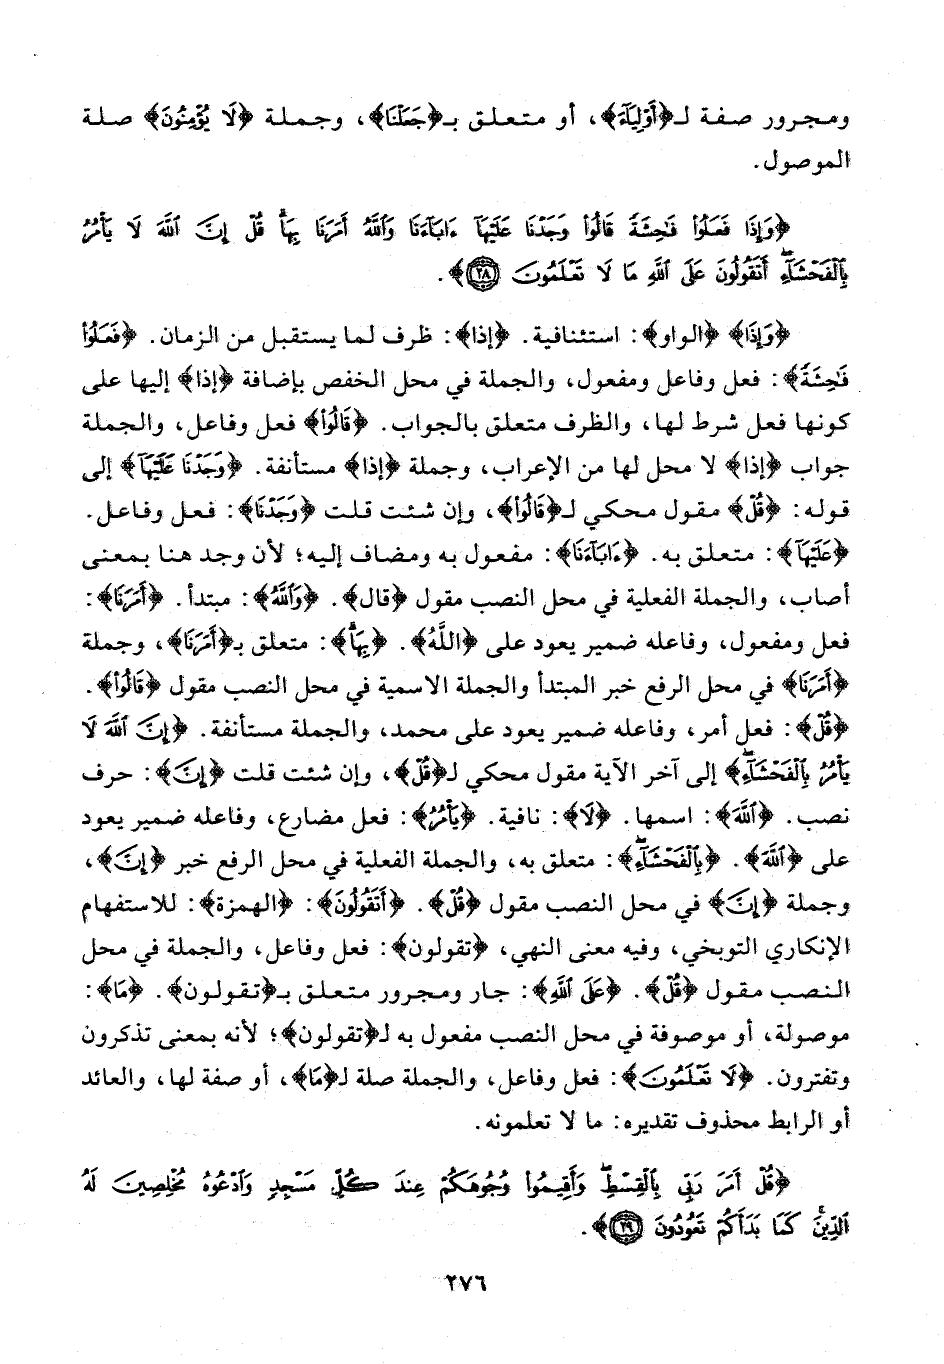 ومجرور صفة لـ﴿أَوْلِيَآءَ﴾، أو متعلق بـ﴿جَعَلْنَا﴾، وجملة ﴿لَا يُؤْمِنُونَ﴾ صلة
الموصول.
﴿وَإِذَا فَعَلُوا۟ فَٰحِشَةً قَالُوا۟ وَجَدْنَا عَلَيْهَآ ءَابَآءَنَا وَٱللَّهُ أَمَرَنَا بِهَا ۗ قُلْ إِنَّ ٱللَّهَ لَا يَأْمُرُ
بِٱلْفَحْشَآءِ ۖ أَتَقُولُونَ عَلَى ٱللَّهِ مَا لَا تَعْلَمُونَ ٢٨﴾.
﴿وَإِذَا﴾ ﴿الواو﴾: استئنافية. ﴿إذا﴾: ظرف لما يستقبل من الزمان. ﴿فَعَلُوا۟
فَٰحِشَةً﴾: فعل وفاعل ومفعول، والجملة في محل الخفص بإضافة ﴿إذا﴾ إليها على
كونها فعل شرط لها، والظرف متعلق بالجواب. ﴿قَالُوا۟﴾ فعل وفاعل، والجملة
جواب ﴿إذا﴾ لا محل لها من الإعراب، وجملة ﴿إذا﴾ مستأنفة. ﴿وَجَدْنَا عَلَيْهَآ﴾ إلى
قوله: ﴿قُلْ﴾ مقول محكي لـ﴿قَالُوا۟﴾، وإن شئت قلت ﴿وَجَدْنَا﴾: فعل وفاعل.
﴿عَلَيْهَآ﴾: متعلق به. ﴿ءَابَآءَنَا﴾: مفعول به ومضاف إليه؛ لأن وجد هنا بمعنى
أصاب، والجملة الفعلية في محل النصب مقول ﴿قال﴾. ﴿وَٱللَّهُ﴾: مبتدأ. ﴿أَمَرَنَا﴾:
فعل ومفعول، وفاعله ضمير يعود على ﴿اللَّهُ﴾. ﴿بِهَا ۗ﴾: متعلق بـ﴿أَمَرَنَا﴾، وجملة
﴿أَمَرَنَا﴾ في محل الرفع خبر المبتدأ والجملة الاسمية في محل النصب مقول ﴿قَالُوا۟﴾.
﴿قُلْ﴾: فعل أمر، وفاعله ضمير يعود على محمد، والجملة مستأنفة. ﴿إِنَّ ٱللَّهَ لَا
يَأْمُرُ بِٱلْفَحْشَآءِ ۖ﴾ إلى آخر الآية مقول محكي لـ﴿قُلْ﴾، وإن شئت قلت ﴿إِنَّ﴾: حرف
نصب. ﴿ٱللَّهَ﴾: اسمها. ﴿لَا﴾: نافية. ﴿يَأْمُرُ﴾: فعل مضارع، وفاعله ضمير يعود
على ﴿ٱللَّهَ﴾. ﴿بِٱلْفَحْشَآءِ ۖ﴾: متعلق به، والجملة الفعلية في محل الرفع خبر ﴿إِنَّ﴾،
وجملة ﴿إِنَّ﴾ في محل النصب مقول ﴿قُلْ﴾. ﴿أَتَقُولُونَ﴾: ﴿الهمزة﴾: للاستفهام
الإنكاري التوبخي، وفيه معنى النهي، ﴿تقولون﴾: فعل وفاعل، والجملة في محل
النصب مقول ﴿قُلْ﴾. ﴿عَلَى ٱللَّهِ﴾: جار ومجرور متعلق بـ﴿تقولون﴾. ﴿مَا﴾:
موصولة، أو موصوفة في محل النصب مفعول به لـ﴿تقولون﴾؛ لأنه بمعنى تذكرون
وتفترون. ﴿لَا تَعْلَمُونَ﴾: فعل وفاعل، والجملة صلة لـ﴿مَا﴾، أو صفة لها، والعائد
أو الرابط محذوف تقديره: ما لا تعلمونه.
﴿قُلْ أَمَرَ رَبِّى بِٱلْقِسْطِ ۖ وَأَقِيمُوا۟ وُجُوهَكُمْ عِندَ كُلِّ مَسْجِدٍ وَٱدْعُوهُ مُخْلِصِينَ لَهُ
ٱلدِّينَ ۚ كَمَا بَدَأَكُمْ تَعُودُونَ ٢٩﴾.
٢٧٦